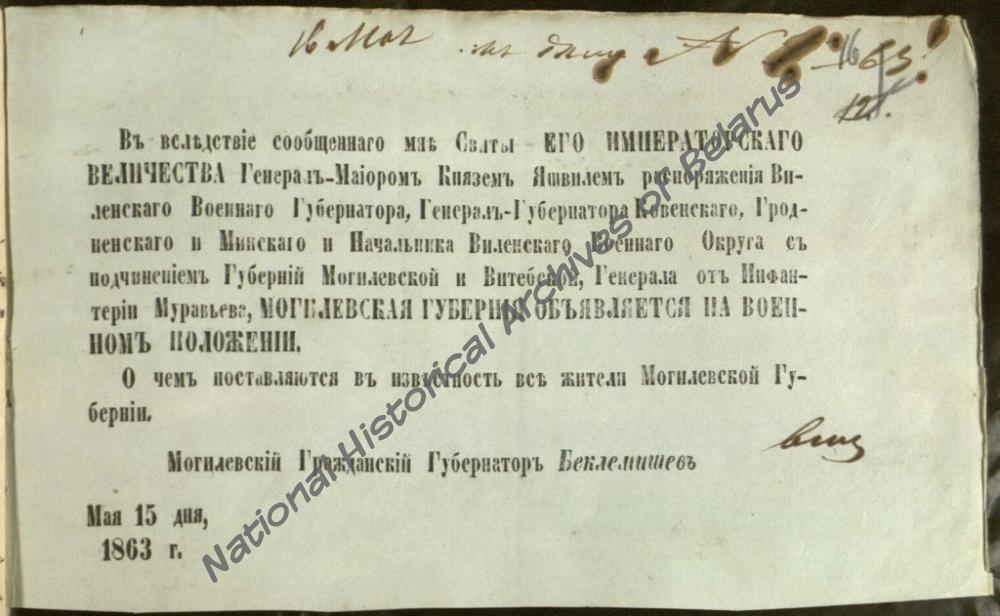 16 Мая
1863!
12.
Въ вслѣдствіе сообщеннаго мнѣ Свиты ЕГО ИМПЕРАТОРСКАГО
ВЕЛИЧЕСТВА Генералъ-Маіоромъ Княземъ Яшвилемъ распоряженія Ви-
ленскаго Военнаго Губернатора, Генералъ-Губернатора Ковенскаго, Грод-
ненскаго и Минскаго и Начальника Виленскаго Военнаго Округа съ
подчиненіемъ Губерній Могилевской и Витебской, Генерала отъ Инфан-
теріи Муравьева, МОГИЛЕВСКАЯ ГУБЕРНІЯ ОБЪЯВЛЯЕТСЯ НА ВОЕН-
НОМЪ ПОЛОЖЕНІИ.
О чемъ поставляются въ извѣстность всѣ жители Могилевской Гу-
берніи.
Могилевскій Гражданскій Губернаторъ Беклемишевъ
Мая 15 дня,
1863 г.
National Historical Archives of Belarus